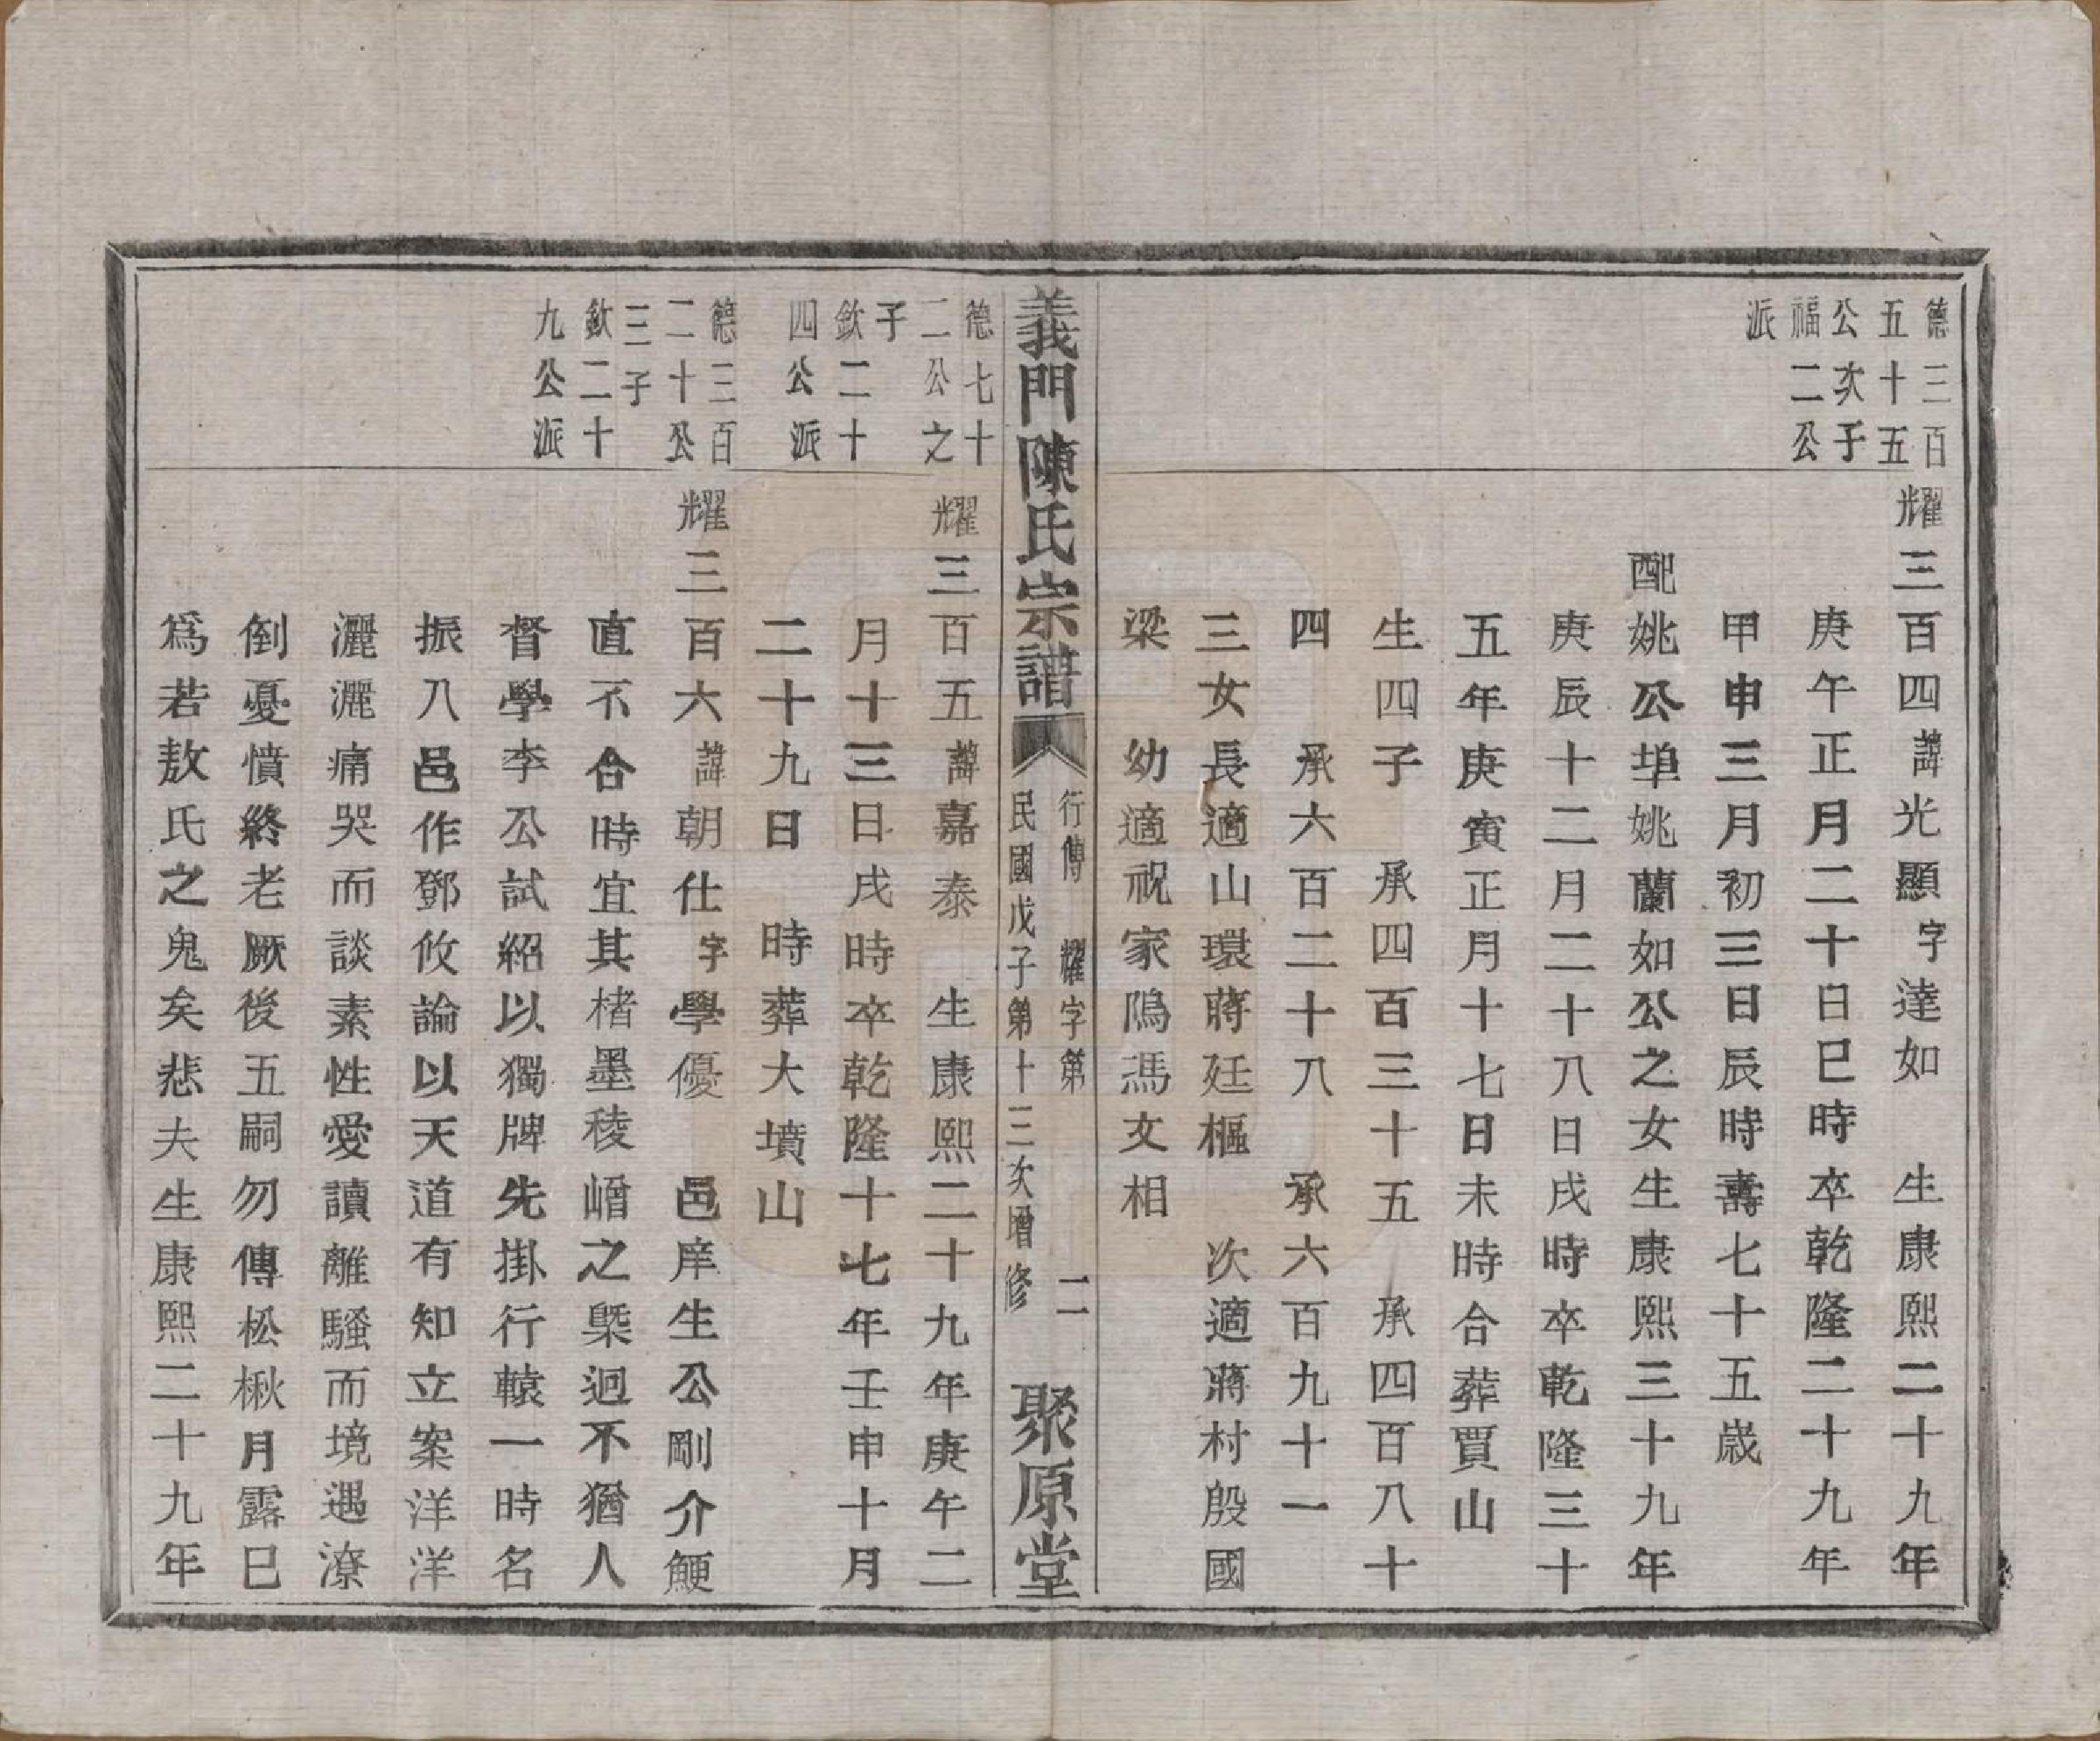 德三百
五十五
公次子
福二公
派
耀三百四諱光顯字達如　生康熙二十九年
庚午正月二十日巳時卒乾隆二十九年
甲申三月初三日辰時壽七十五歲
配姚公埠姚蘭如公之女生康熙三十九年
庚辰十二月二十八日戌時卒乾隆三十
五年庚寅正月十七日未時合葬賈山
生四子　承四百三十五　承四百八十
四　承六百二十八　承六百九十一
三女長適山環蔣廷樞　次適蔣村殷國
梁　幼適祝家隖馮文相
義門陳氏宗譜
行傳　耀字第　二
民國戊子第十三次增修
聚原堂
德七十
二公之
子
欽二十
四公派
耀三百五諱嘉泰　生康熙二十九年庚午二
月十三日戌時卒乾隆十七年壬申十月
二十九日　時葬大墳山
德三百
二十公
三子
欽二十
九公派
耀三百六諱朝仕字學優　邑庠生公剛介鯁
直不合時宜其楮墨稜嶒之槩迥不猶人
督學李公試紹以獨牌先掛行轅一時名
振八邑作鄧攸論以天道有知立案洋洋
灑灑痛哭而談素性愛讀離騷而境遇潦
倒憂憤終老厥後五嗣勿傳松楸月露已
爲若敖氏之鬼矣悲夫生康熙二十九年